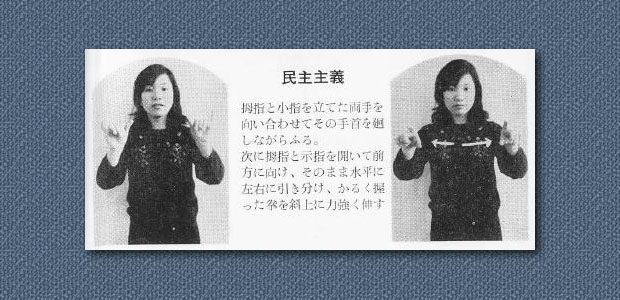 民主主義
拇指と小指を立てた両手を
向い合わせてその手首を廻
しながらふる。
次に拇指と示指を開いて前
方に向け、そのまま水平に
左右に引き分け、かるく握
った拳を斜上に力強く伸す